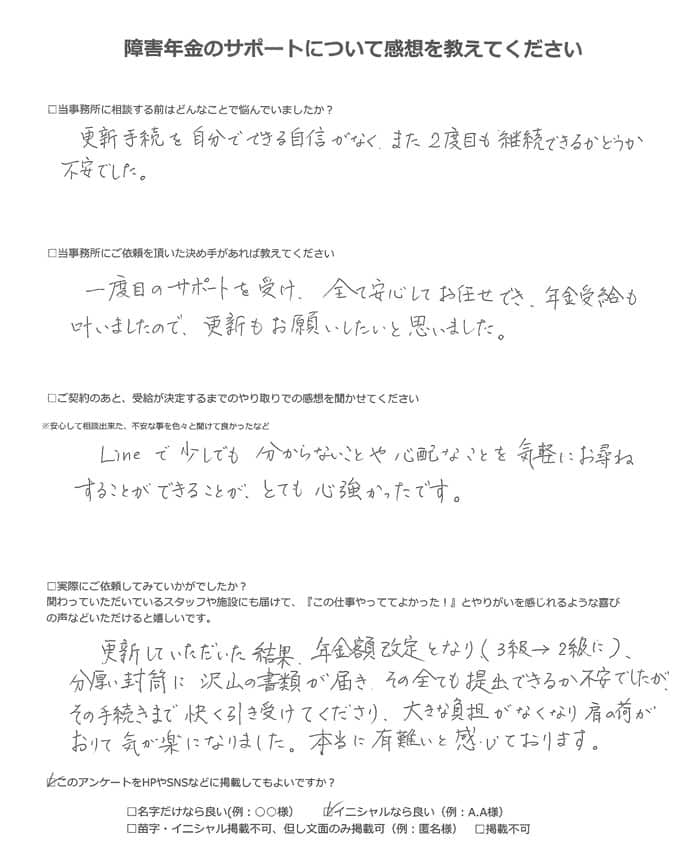 障害年金のサポートについて感想を教えてください
□当事務所に相談する前はどんなことで悩んでいましたか？
更新手続を自分でできる自信がなく、また2度目も継続できるかどうか
不安でした。
□当事務所にご依頼を頂いた決め手があれば教えてください
一度目のサポートを受け、全て安心してお任せでき、年金受給も
叶いましたので、更新もお願いしたいと思いました。
□ご契約のあと、受給が決定するまでのやり取りでの感想を聞かせてください
※安心して相談出来た、不安な事を色々と聞けて良かったなど
Lineで少しでも分からないことや心配なことを気軽にお尋ね
することができることが、とても心強かったです。
□実際にご依頼してみていかがでしたか？
関わっていただいているスタッフや施設にも届けて、『この仕事やっててよかった！』とやりがいを感じれるような喜び
の声などいただけると嬉しいです。
更新していただいた結果、年金額改定となり(3級→2級に)、
分厚い封筒に沢山の書類が届き、その全ても提出できるか不安でしたが、
その手続きまで快く引き受けてくださり、大きな負担がなくなり肩の荷が
おりて気が楽になりました。本当に有難いと感じております。
☑このアンケートをHPやSNSなどに掲載してもよいですか？
□名字だけなら良い(例：○○様） ☑イニシャルなら良い（例：A.A様）
□苗字・イニシャル掲載不可、但し文面のみ掲載可（例：匿名様） □掲載不可